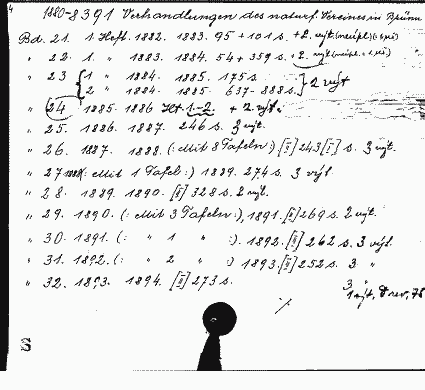 1880-8391 Verhandlungen des naturf. Vereines in Brünn
Bd. 21. 1 Heft. 1882. 1883. 95 + 101 s. + 2.
" 22. 1. " 1883. 1884. 54 + 359 s. + 2.
" 23 { 1 " 1884. 1885. 175 s.
2 " 1884. 1885. 637-888 s. } 2 výt
" 24 1885. 1886 Hft. 1-2. + 2 výt.
" 25. 1886. 1887. 246 s. 3 výt.
" 26. 1887. 1888. (: Mit 8 Tafeln :) [II] 243 [I] s. 3 výt.
" 27 (: Mit 1 Tafel :) 1889. 274 s. 3 výt.
" 28. 1889. 1890. [II] 328 s. 2 výt.
" 29. 1890. (: Mit 3 Tafeln :), 1891. [II] 269 s. 2 výt.
" 30. 1891. (: " 1 " :). 1892. [II] 262 s. 3 výt.
" 31. 1892. (: " 2 " :) 1893. [II] 252 s. 3 "
" 32. 1893. 1894. [II] 273 s. 3 "
1 výt, rev. 78
S